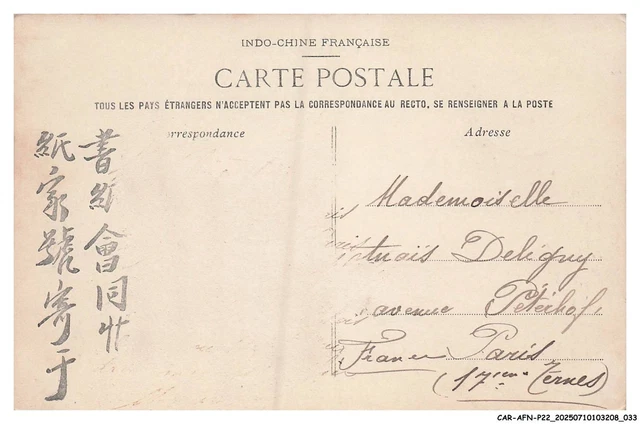 INDO-CHINE FRANÇAISE
CARTE POSTALE
TOUS LES PAYS ÉTRANGERS N'ACCEPTENT PAS LA CORRESPONDANCE AU RECTO, SE RENSEIGNER A LA POSTE
rrespondance
Adresse
書 會同
紙家號寄于
Mademoiselle
Deligny
avenue Péterhof,
France Paris
(17ème Ternes)
CAR-AFN-P22_20250710103208_033